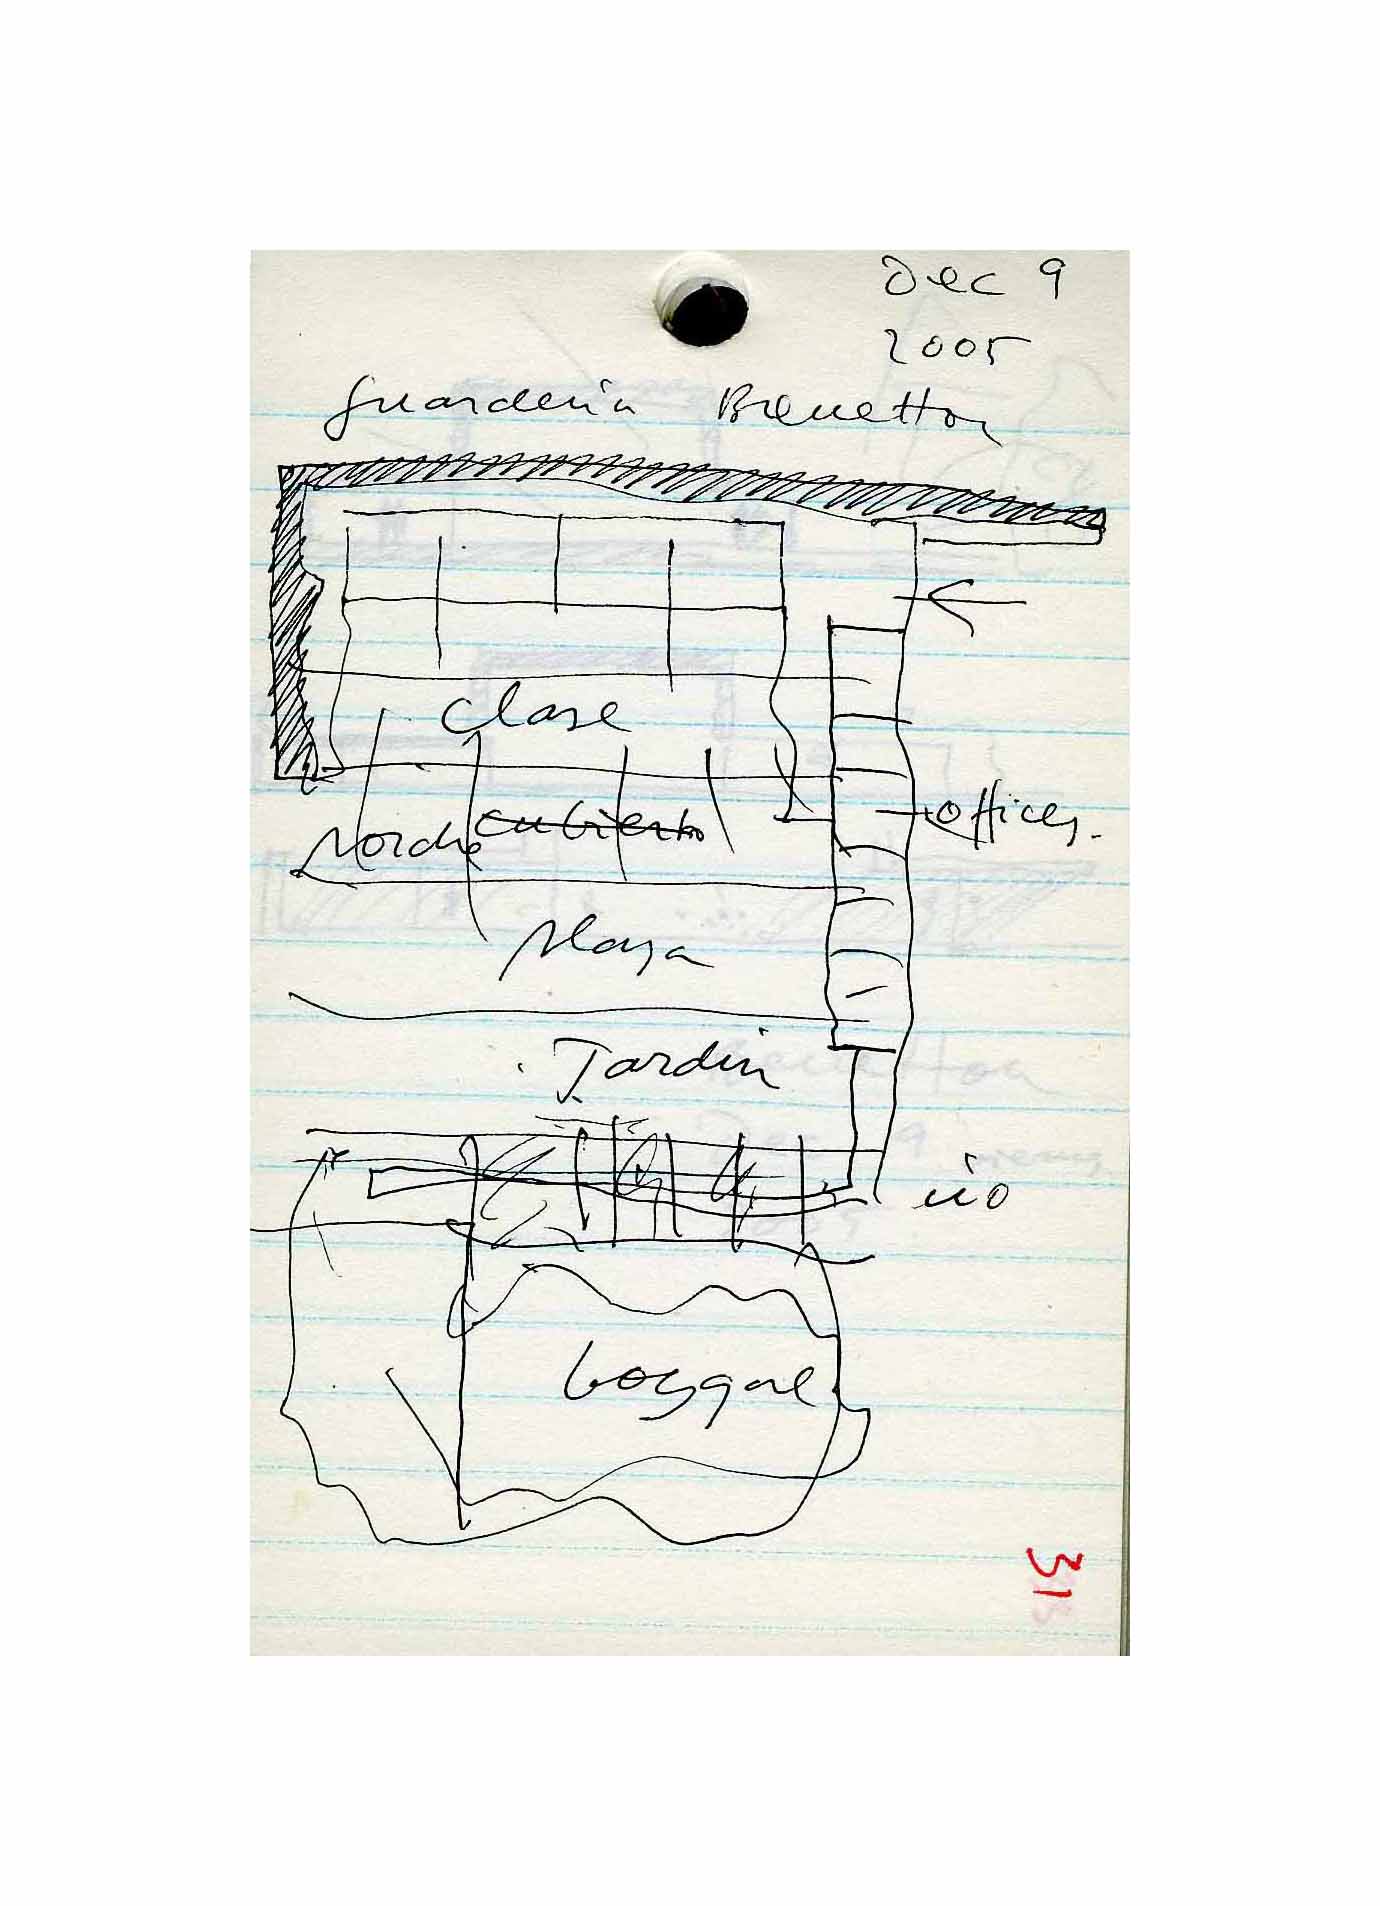 Dec 9
2005
Guarderia Benetton
Clase
Porche cubierto
Playa
Jardin
offices.
rio
bosque
31